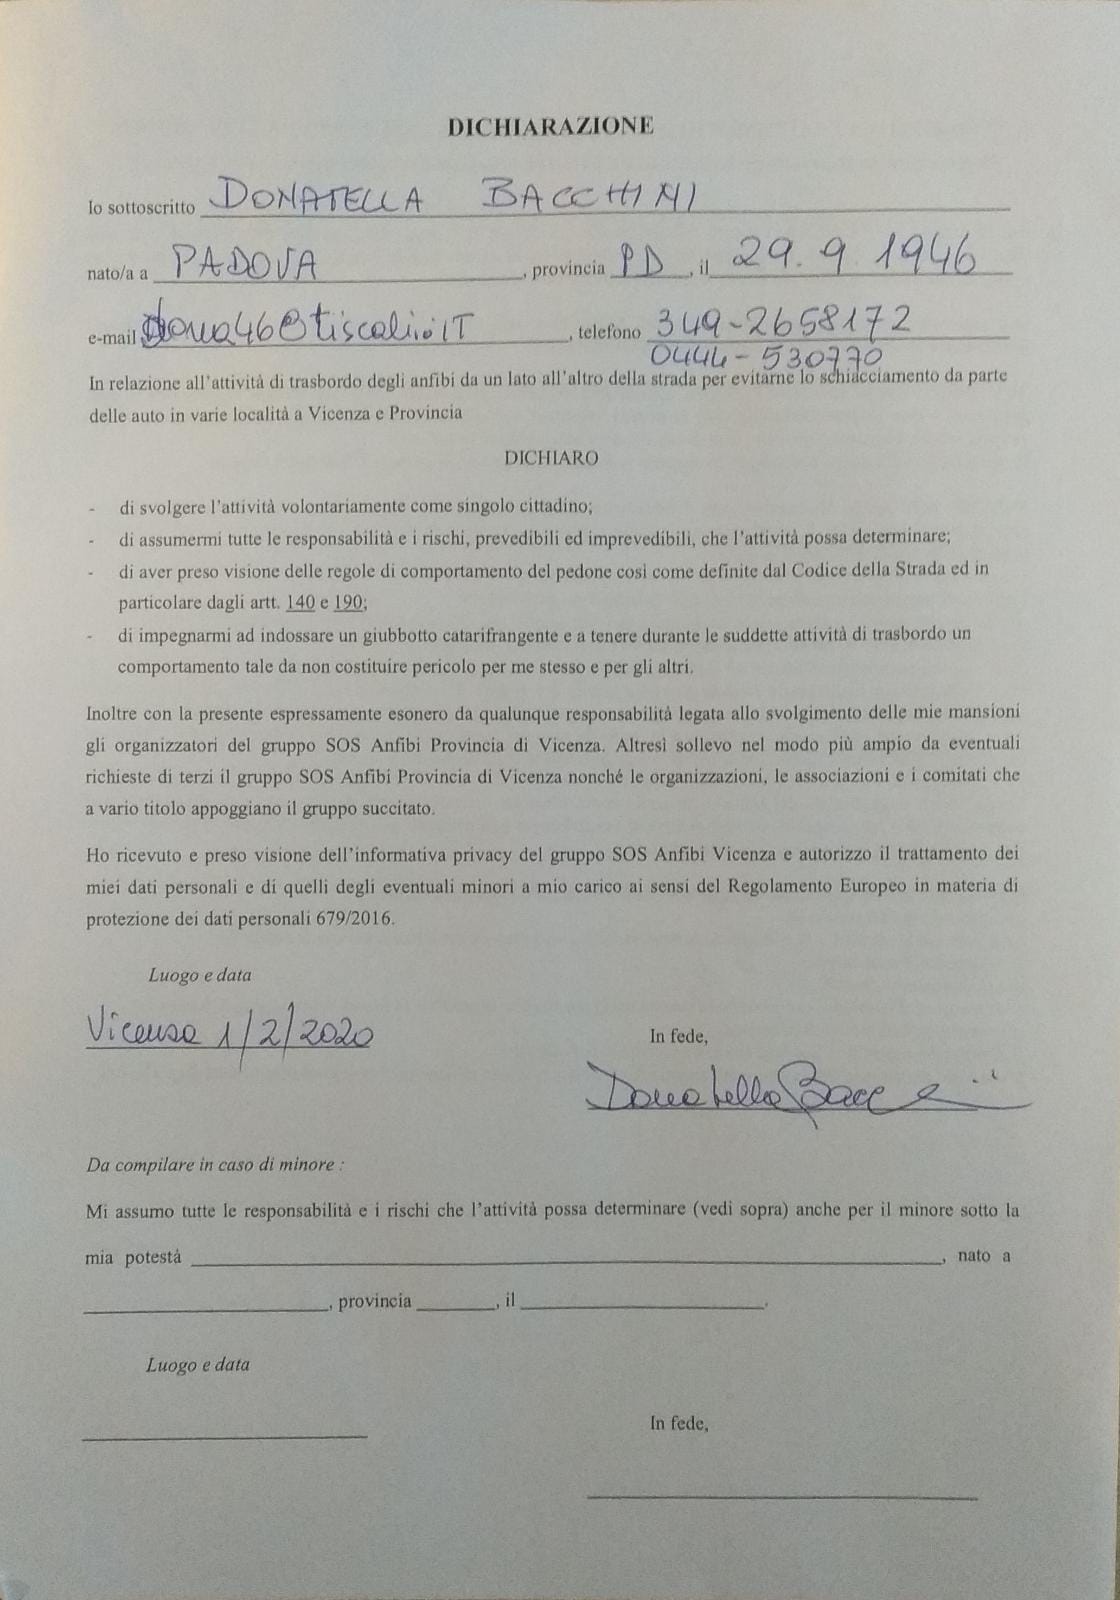 DICHIARAZIONE
Io sottoscritto DONATELLA BACCHINI
nato/a a PADOVA, provincia PD, il 29.9.1946
e-mail dona46@tiscali.iT, telefono 349-2658172
0444-530770
In relazione all'attività di trasbordo degli anfibi da un lato all'altro della strada per evitarne lo schiacciamento da parte
delle auto in varie località a Vicenza e Provincia
DICHIARO
- di svolgere l'attività volontariamente come singolo cittadino;
- di assumermi tutte le responsabilità e i rischi, prevedibili ed imprevedibili, che l'attività possa determinare;
- di aver preso visione delle regole di comportamento del pedone così come definite dal Codice della Strada ed in
particolare dagli artt. 140 e 190;
- di impegnarmi ad indossare un giubbotto catarifrangente e a tenere durante le suddette attività di trasbordo un
comportamento tale da non costituire pericolo per me stesso e per gli altri.
Inoltre con la presente espressamente esonero da qualunque responsabilità legata allo svolgimento delle mie mansioni
gli organizzatori del gruppo SOS Anfibi Provincia di Vicenza. Altresì sollevo nel modo più ampio da eventuali
richieste di terzi il gruppo SOS Anfibi Provincia di Vicenza nonché le organizzazioni, le associazioni e i comitati che
a vario titolo appoggiano il gruppo succitato.
Ho ricevuto e preso visione dell'informativa privacy del gruppo SOS Anfibi Vicenza e autorizzo il trattamento dei
miei dati personali e di quelli degli eventuali minori a mio carico ai sensi del Regolamento Europeo in materia di
protezione dei dati personali 679/2016.
Luogo e data
Vicenza 1/2/2020
In fede,
Donatella Bacchini
Da compilare in caso di minore :
Mi assumo tutte le responsabilità e i rischi che l'attività possa determinare (vedi sopra) anche per il minore sotto la
mia potestà , nato a
, provincia , il .
Luogo e data
In fede,